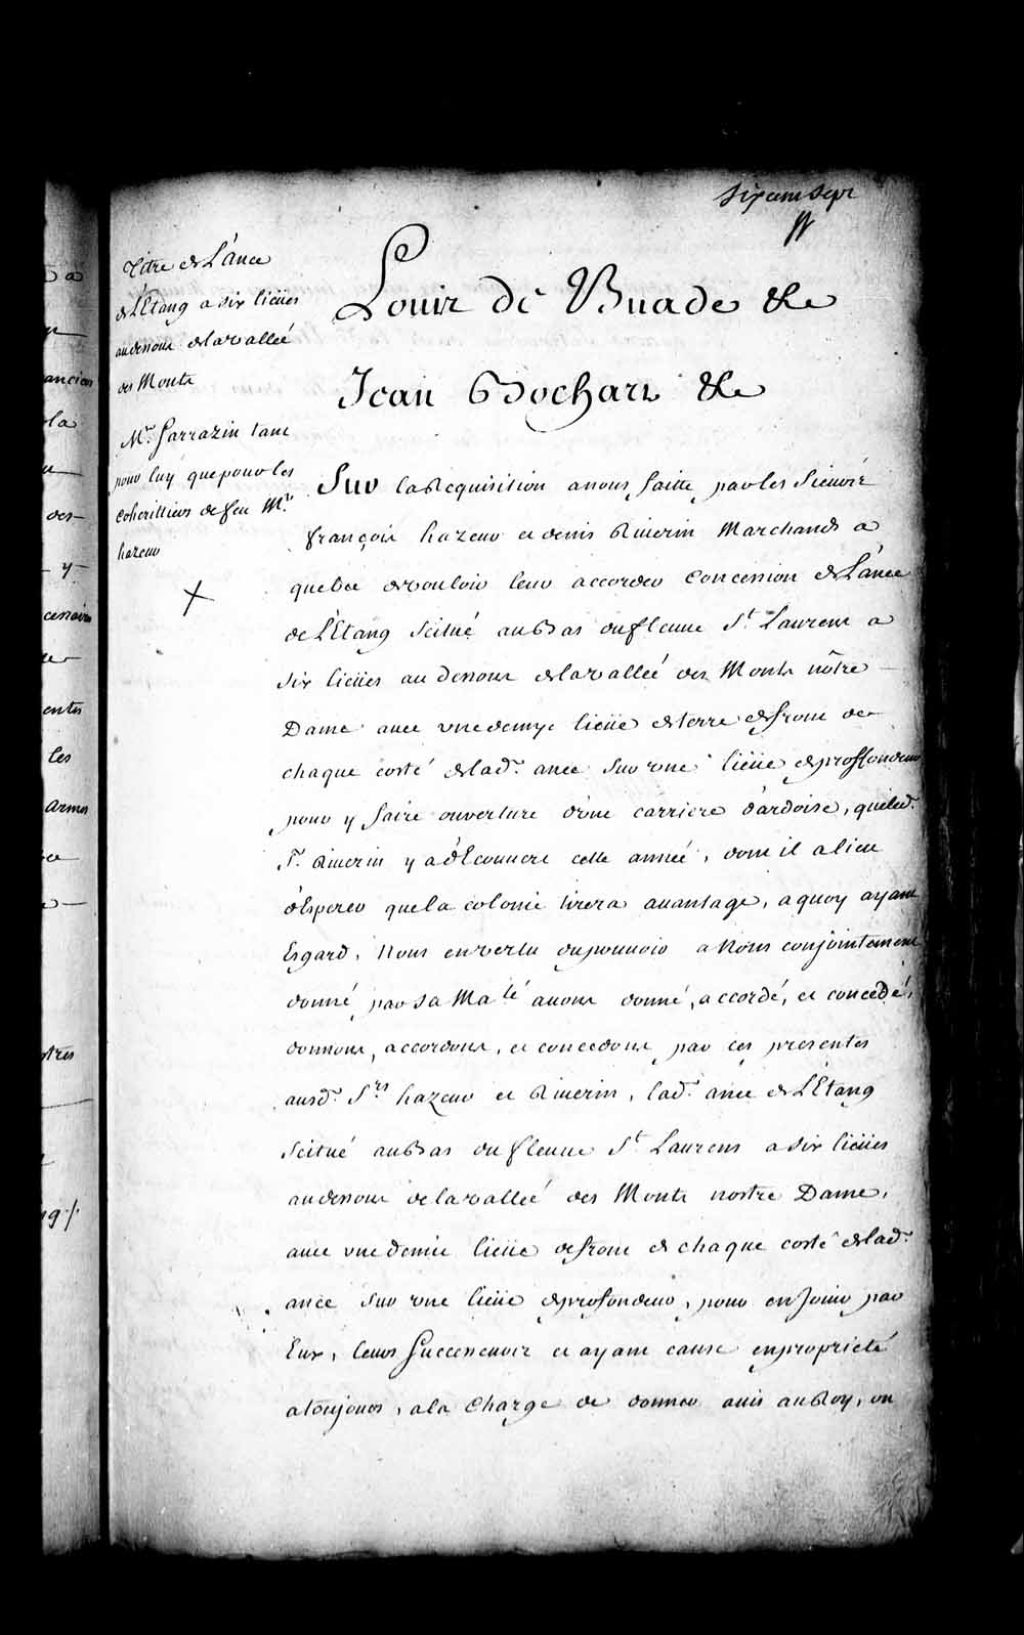 Six cens Sept
Titre de L'ance
de L'Etang a six lieües
au dessous de la vallée
des Monts
Mr. Sarrazin tant
pour luy que pour les
Coheritiers de feu Mr.
hazeur
Louis de Buade &c
Jean Bochart &c
Sur la Requisition a nous faitte par les Sieurs
françois hazeur et denis Riverin Marchands a
quebec de vouloir leur accorder Concession de L'ance
de L'Etang Scitué au Bas du fleuue St. Laurens a
six lieües au dessous de la vallée des Monts nôtre
Dame auec vne demye lieüe de terre de front de
chaque costé de lad. ance sur vne lieüe de proffondeur
pour y faire ouverture d'vne carriere d'ardoise, que led.
Sr. Riuerin y a déCouuerte cette année, dont il a lieu
d'Esperer que la colonie tirera auantage, a quoy ayant
Esgard, Nous en vertu du pouuoir a Nous conjointement
donné par sa Ma.té auons donné, accordé, et concedé,
donnons, accordons, et concedons par ces presentes
ausd. Srs. hazeur et Riuerin, lad. ance de L'Etang
Scitué au Bas du fleuue St. Laurens a six lieües
au dessous de la vallée des Monts nostre Dame,
auec vne demie lieüe de front de chaque costé de lad.
ance sur vne lieüe de profondeur, pour en Jouir par
Eux, leurs Successeurs et ayant cause en proprieté
a toujours, a la Charge de donner auis au Roy, ou
ancien
la
des
y
cessaires
entes
les
Armes